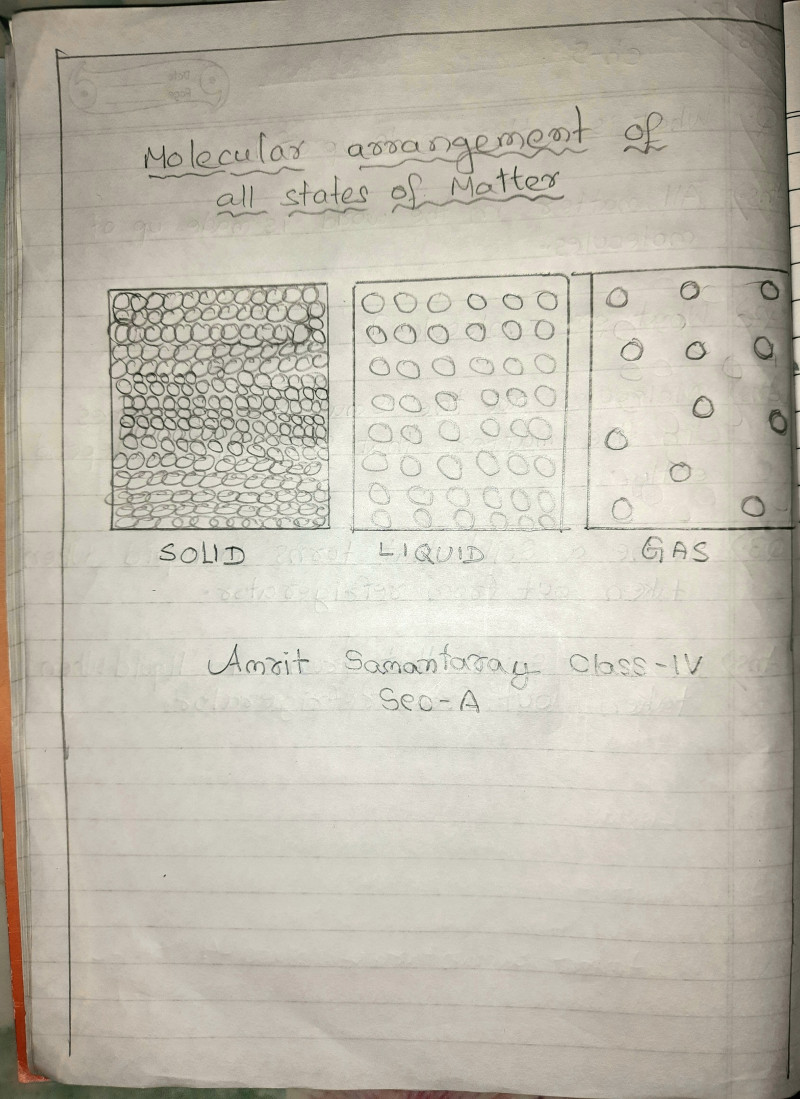 Molecular arrangement of
all states of Matter
SOLID LIQUID GAS
Amrit Samantaray Class-IV
Sec-A